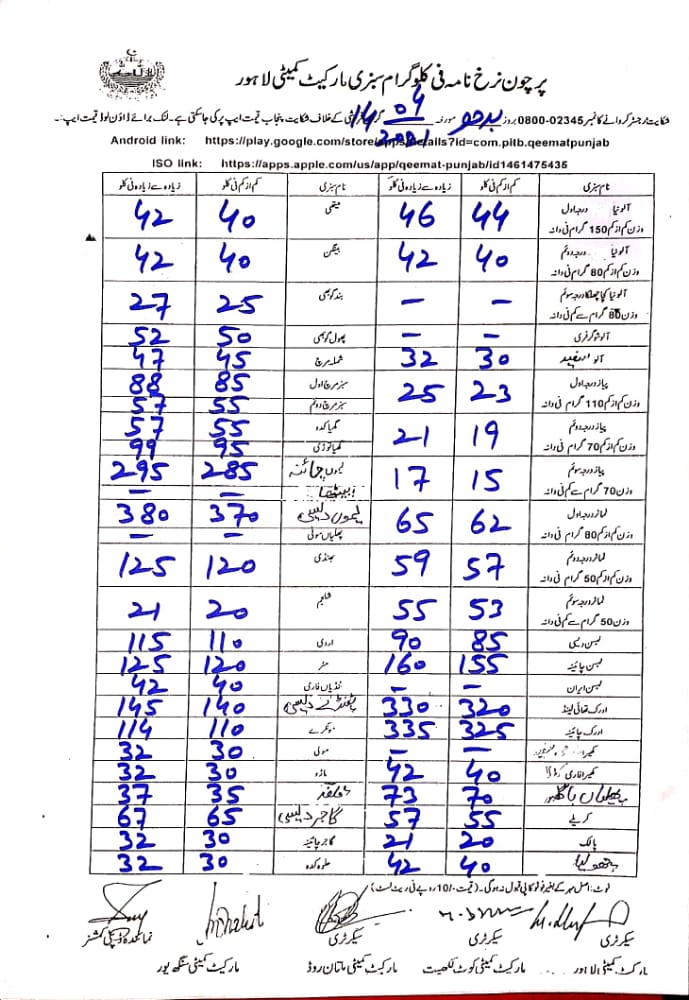 پرچون نرخ نامہ فی کلوگرام سبزی مارکیٹ کمیٹی لاہور
شکایت رجسٹر کروانے کا نمبر 0800-02345 بروز بدھ مورخہ 14 04 2021 کے خلاف شکایت پنجاب قیمت ایپ پر کی جاسکتی ہے۔ لنک برائے ڈاؤن لوڈ قیمت ایپ:۔
Android link: https://play.google.com/store/apps/details?id=com.pitb.qeematpunjab
ISO link: https://apps.apple.com/us/app/qeemat-punjab/id1461475435
نام سبزی کم از کم فی کلو زیادہ سے زیادہ فی کلو نام سبزی کم از کم فی کلو زیادہ سے زیادہ فی کلو
آلو نیا درجہ اول 44 46 میتھی 40 42
وزن کم از کم 150 گرام فی دانہ
آلو نیا درجہ دوئم 40 42 بینگن 40 42
وزن کم از کم 80 گرام فی دانہ
آلو نیا کچا چھلکا درجہ سوئم – – بند گوبھی 25 27
وزن 80 گرام سے کم فی دانہ
آلو شوگر فری – – پھول گوبھی 50 52
آلو سفید 30 32 شملہ مرچ 45 47
پیاز درجہ اول 23 25 سبز مرچ اول 85 88
وزن کم از کم 110 گرام فی دانہ سبز مرچ دوئم 55 57
پیاز درجہ دوئم 19 21 گھیا کدو 55 57
وزن کم از کم 70 گرام فی دانہ گھیا توری 95 99
پیاز درجہ سوئم 15 17 لیموں چائنہ 285 295
وزن 70 گرام سے کم فی دانہ – –
ٹماٹر درجہ اول 62 65 لیموں دیسی 370 380
وزن کم از کم 80 گرام فی دانہ پھلیاں مولی – –
ٹماٹر درجہ دوئم 57 59 بھنڈی 120 125
وزن کم از کم 50 گرام فی دانہ
ٹماٹر درجہ سوئم 53 55 شلجم 20 21
وزن 50 گرام سے کم فی دانہ
لہسن دیسی 85 90 اروی 110 115
لہسن چائنہ 155 160 مٹر 120 125
لہسن ایران – – ٹینڈیاں فارمی 40 42
ادرک تھائی لینڈ 320 330 ٹینڈے دیسی 140 145
ادرک چائنہ 325 335 مونگرے 110 114
کھیرا – – مولی 30 32
کھیرا فارمی 40 42 30 32
پھلیاں 70 73 35 37
کریلے 55 57 گاجر دیسی 65 67
پالک 20 21 گاجر چائنہ 30 32
40 42 حلوہ کدو 30 32
نوٹ: اصل مہر کے بغیر فوٹو کاپی قبول نہ ہوگی۔ (قیمت -/10 روپے فی ریٹ لسٹ)
سیکرٹری سیکرٹری سیکرٹری نمائندہ ڈپٹی کمشنر
مارکیٹ کمیٹی لاہور مارکیٹ کمیٹی کوٹ لکھپت مارکیٹ کمیٹی ملتان روڈ مارکیٹ کمیٹی سنگھ پور